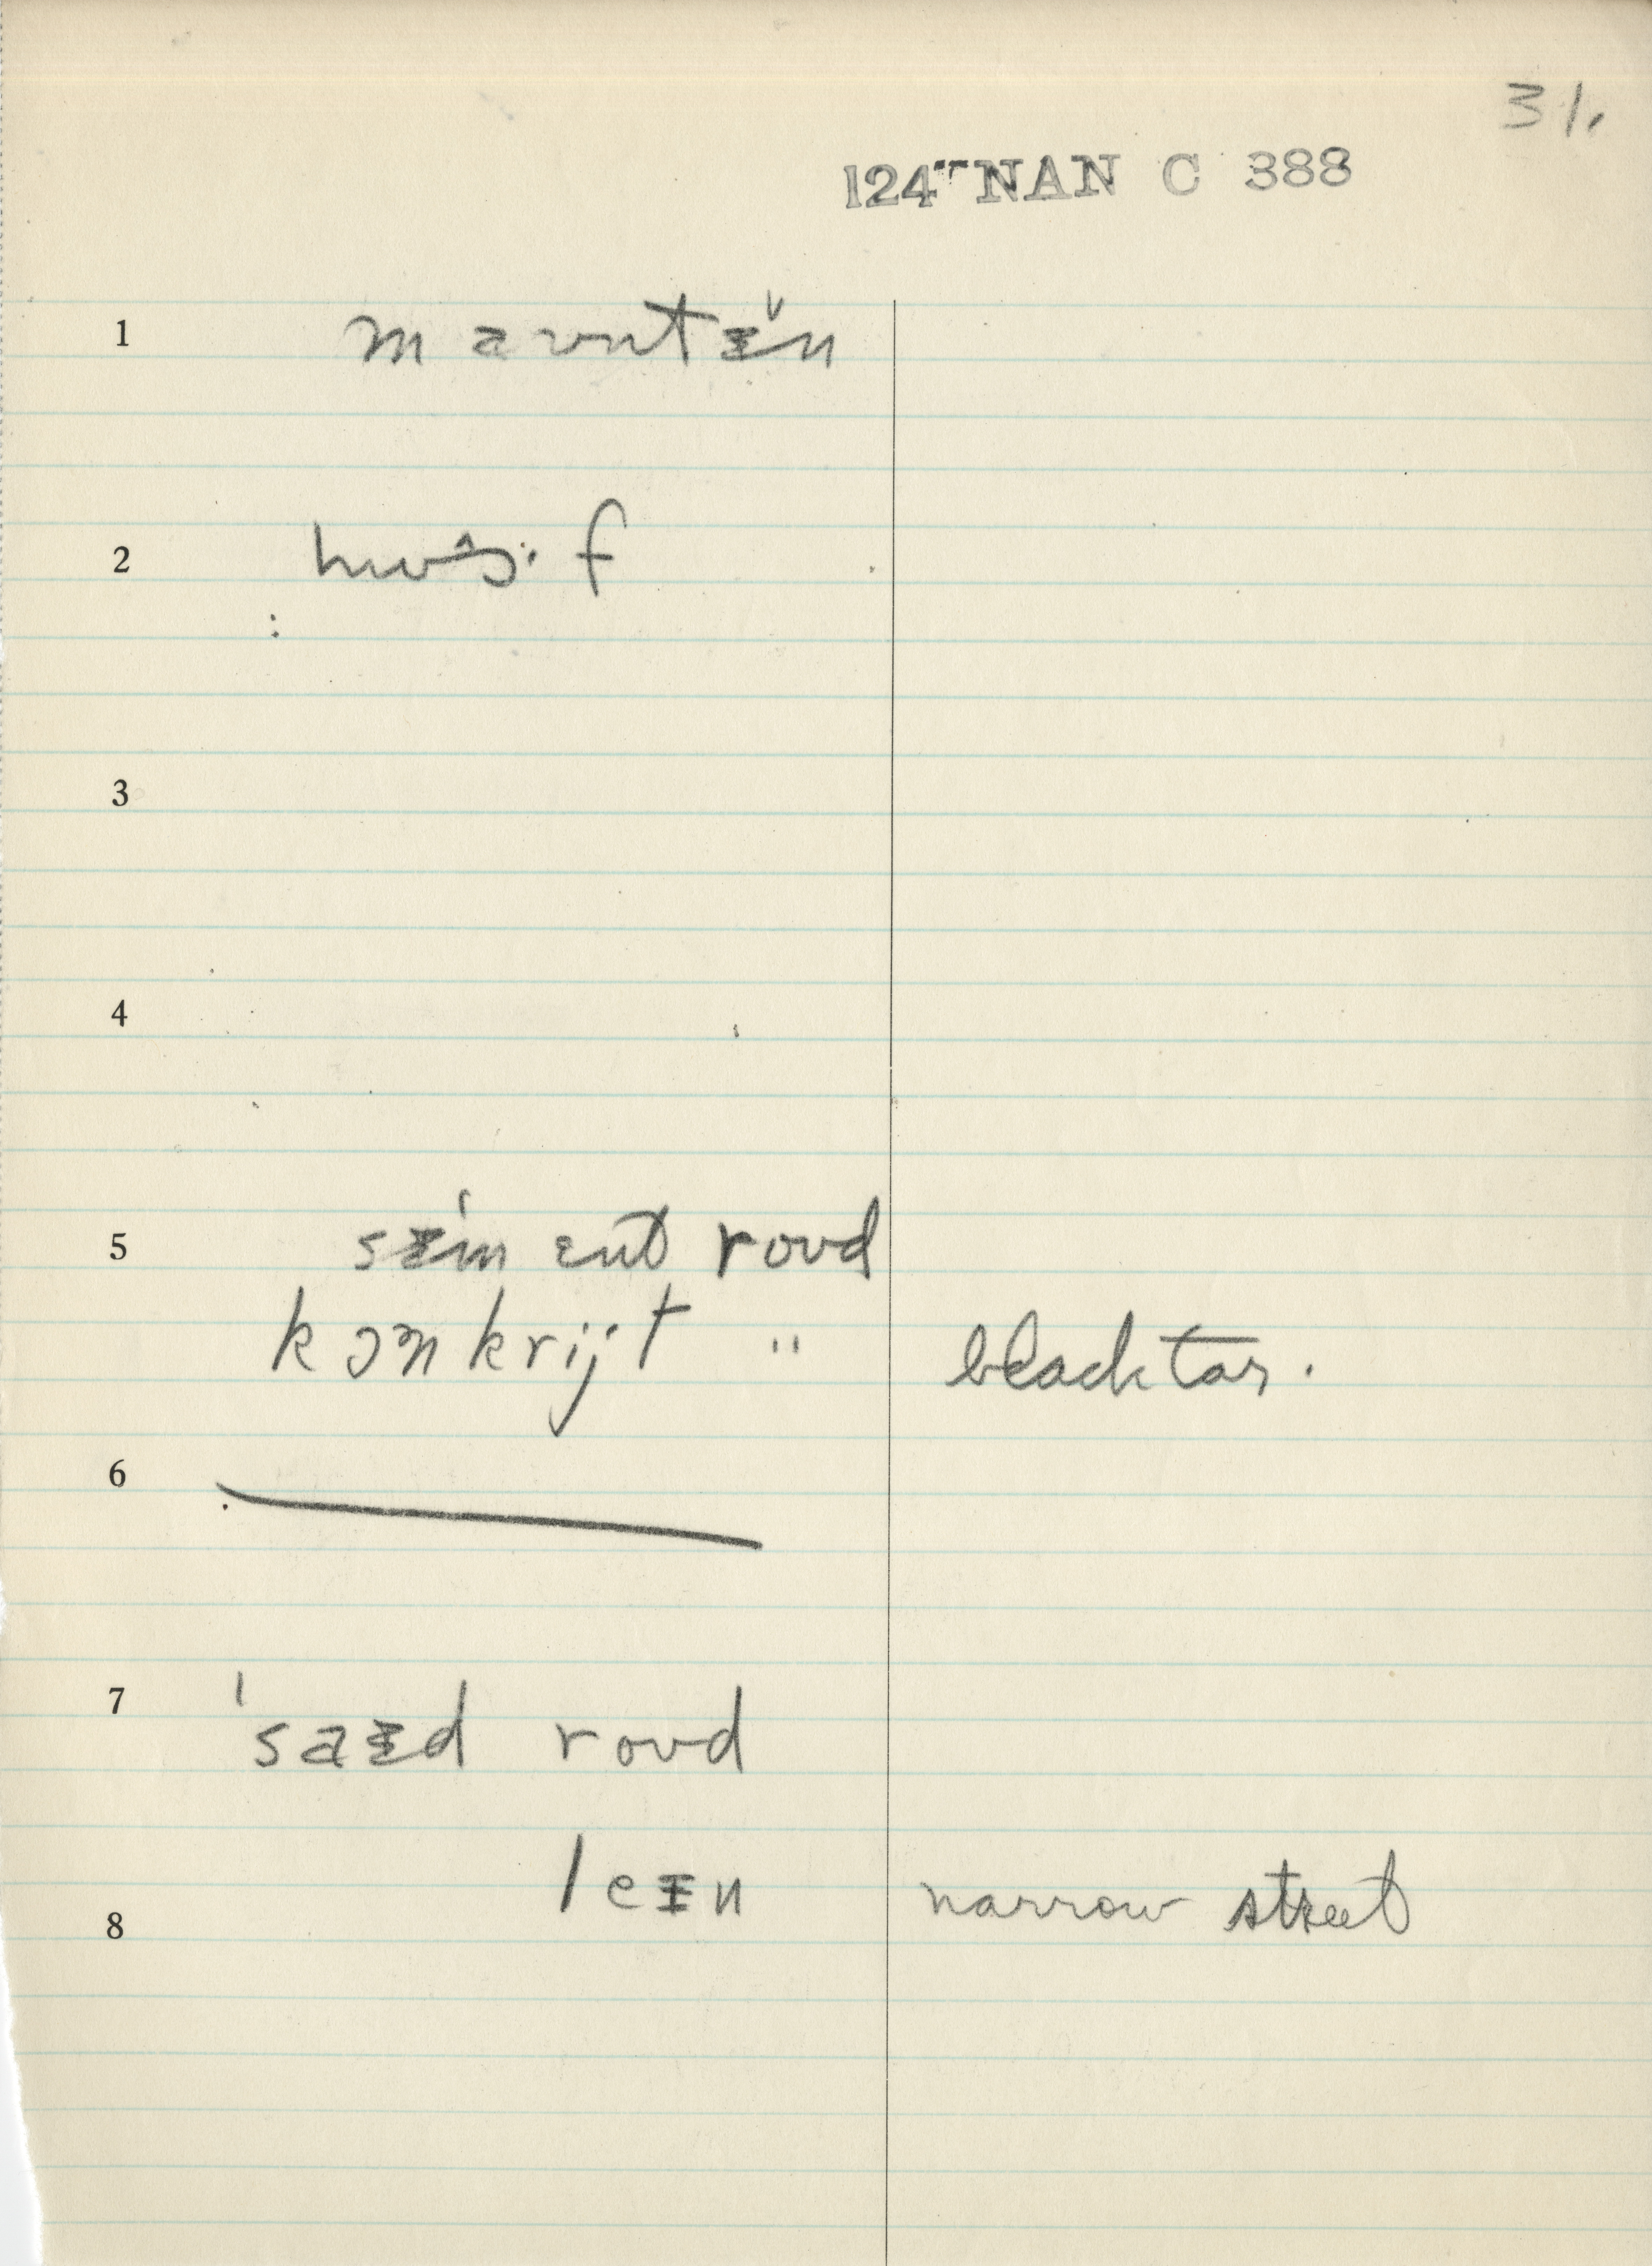 31.
124 NAN C 388
1 maʊntᵻ̌n
2
3
4
5 sᵻ́mɛnt roʊd
kɔnkrijt " blacktar.
6
7 ˈsaᵻd roʊd
leᵻn narrow street
8